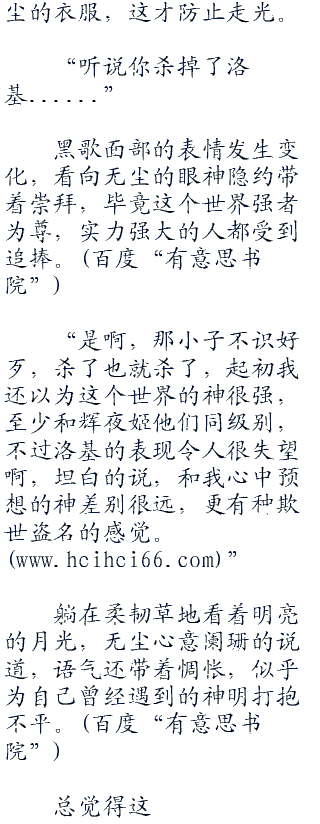 尘的衣服，这才防止走光。
“听说你杀掉了洛
基......”
黑歌面部的表情发生变
化，看向无尘的眼神隐约带
着崇拜，毕竟这个世界强者
为尊，实力强大的人都受到
追捧。(百度“有意思书
院”)
“是啊，那小子不识好
歹，杀了也就杀了，起初我
还以为这个世界的神很强，
至少和辉夜姬他们同级别，
不过洛基的表现令人很失望
啊，坦白的说，和我心中预
想的神差别很远，更有种欺
世盗名的感觉。
(www.hcihci66.com)”
躺在柔韧草地看着明亮
的月光，无尘心意阑珊的说
道，语气还带着惆怅，似乎
为自己曾经遇到的神明打抱
不平。(百度“有意思书
院”)
总觉得这